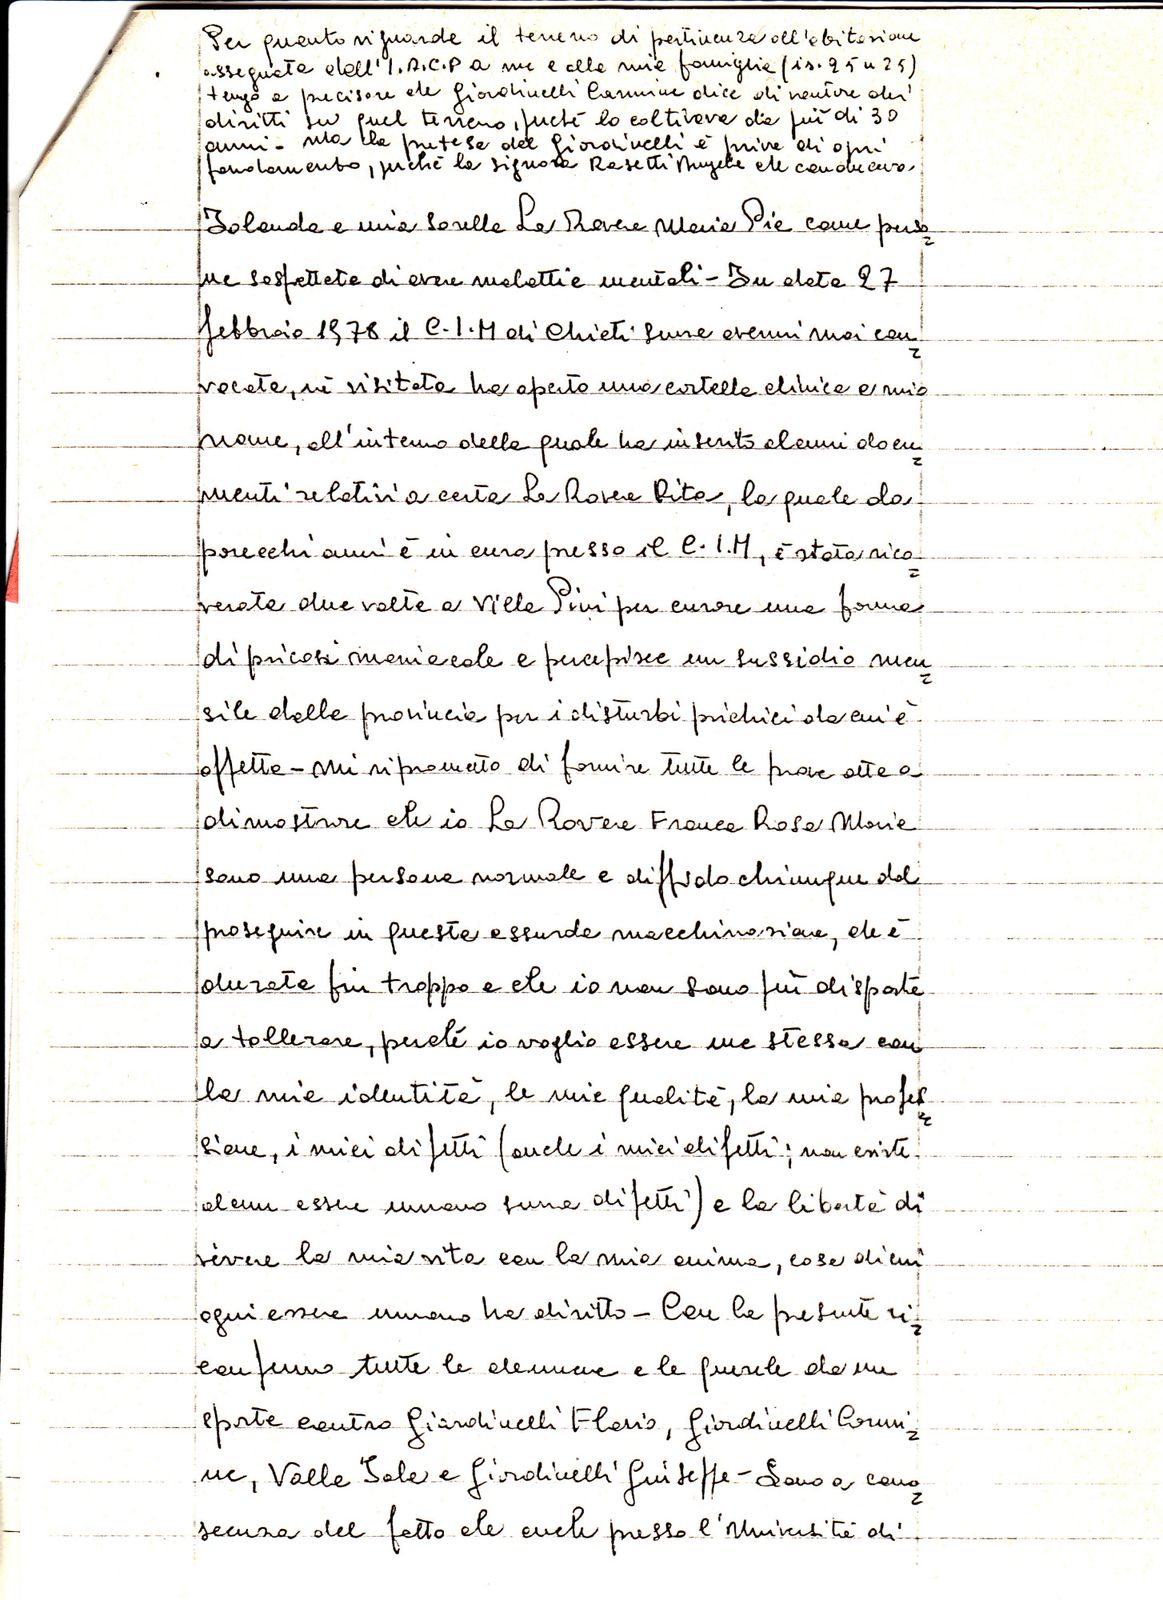 Per quanto riguarda il terreno di pertinenza all'abitazione
assegnata dall'I.A.C.P a me e alla mia famiglia (is. 25 n 25)
tengo a precisare che Giardinelli Carmine dice di vantare dei
diritti su quel terreno, perché lo coltivava da più di 30
anni - Ma la pretesa del Giardinelli è priva di ogni
fondamento, perché la signora Rasetti Angela che conduceva
Iolanda e mia sorella La Rovere Maria Pia come perso=
ne sospettate di avere malattie mentali - In data 27
febbraio 1978 il C.I.M di Chieti senza avermi mai con=
vocata, né visitata ha aperto una cartella clinica a mio
nome, all'interno della quale ha inserito alcuni docu=
menti relativi a certa La Rovere Rita, la quale da
parecchi anni è in cura presso il C.I.M, è stata rico=
verata due volte a Villa Pini per curare una forma
di psicosi maniacale e percepisce un sussidio men=
sile dalla provincia per i disturbi psichici da cui è
affetta - Mi riprometto di fornire tutte le prove atte a
dimostrare che io La Rovere Franca Rosa Maria
sono una persona normale e diffido chiunque dal
proseguire in questa assurda macchinazione, che è
durata fin troppo e che io non sono più disposta
a tollerare, perché io voglio essere me stessa con
la mia identità, le mie qualità, la mia profes=
sione, i miei difetti (anche i miei difetti; non esiste
alcun essere umano senza difetti) e la libertà di
vivere la mia vita con la mia anima, cosa di cui
ogni essere umano ha diritto - Con la presente ri=
confermo tutte le denunce e le querele da me
sporte contro Giardinelli Flavio, Giardinelli Carmi=
ne, Valle Iole e Giardinelli Giuseppe - Sono a cono=
scenza del fatto che anche presso l'Università di